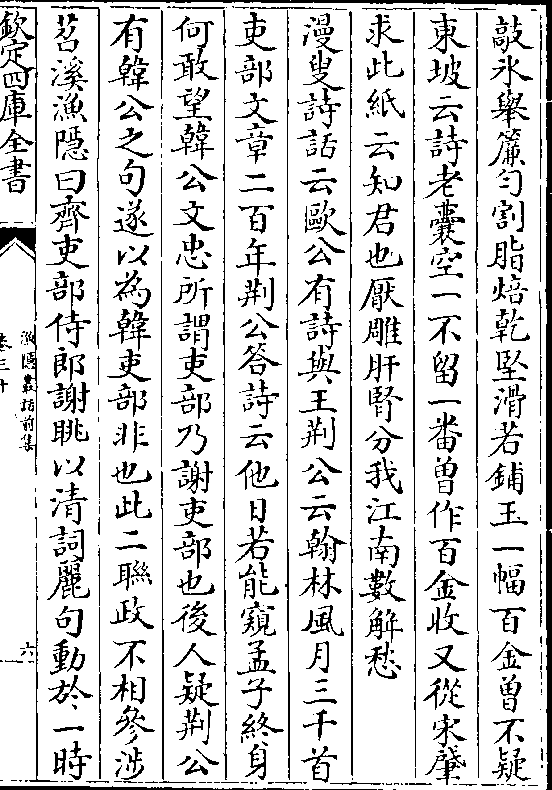 敲氷舉簾勻割脂焙乾堅滑若鋪玉一幅百金曾不疑
東坡云詩老囊空一不留一番曾作百金收又從宋肇
求此紙云知君也厭雕肝腎分我江南數解愁
漫叟詩話云歐公有詩與王荆公云翰林風月三千首
吏部文章二百年荆公答詩云他日若能窺孟子終身
何敢望韓公文忠所謂吏部乃謝吏部也後人疑荆公
有韓公之句遂以為韓吏部非也此二聯政不相參涉
苕溪漁隠曰齊吏部侍郎謝眺以清詞麗句動於一時
欽定四庫全書
漁隠叢話前集
卷三十
六